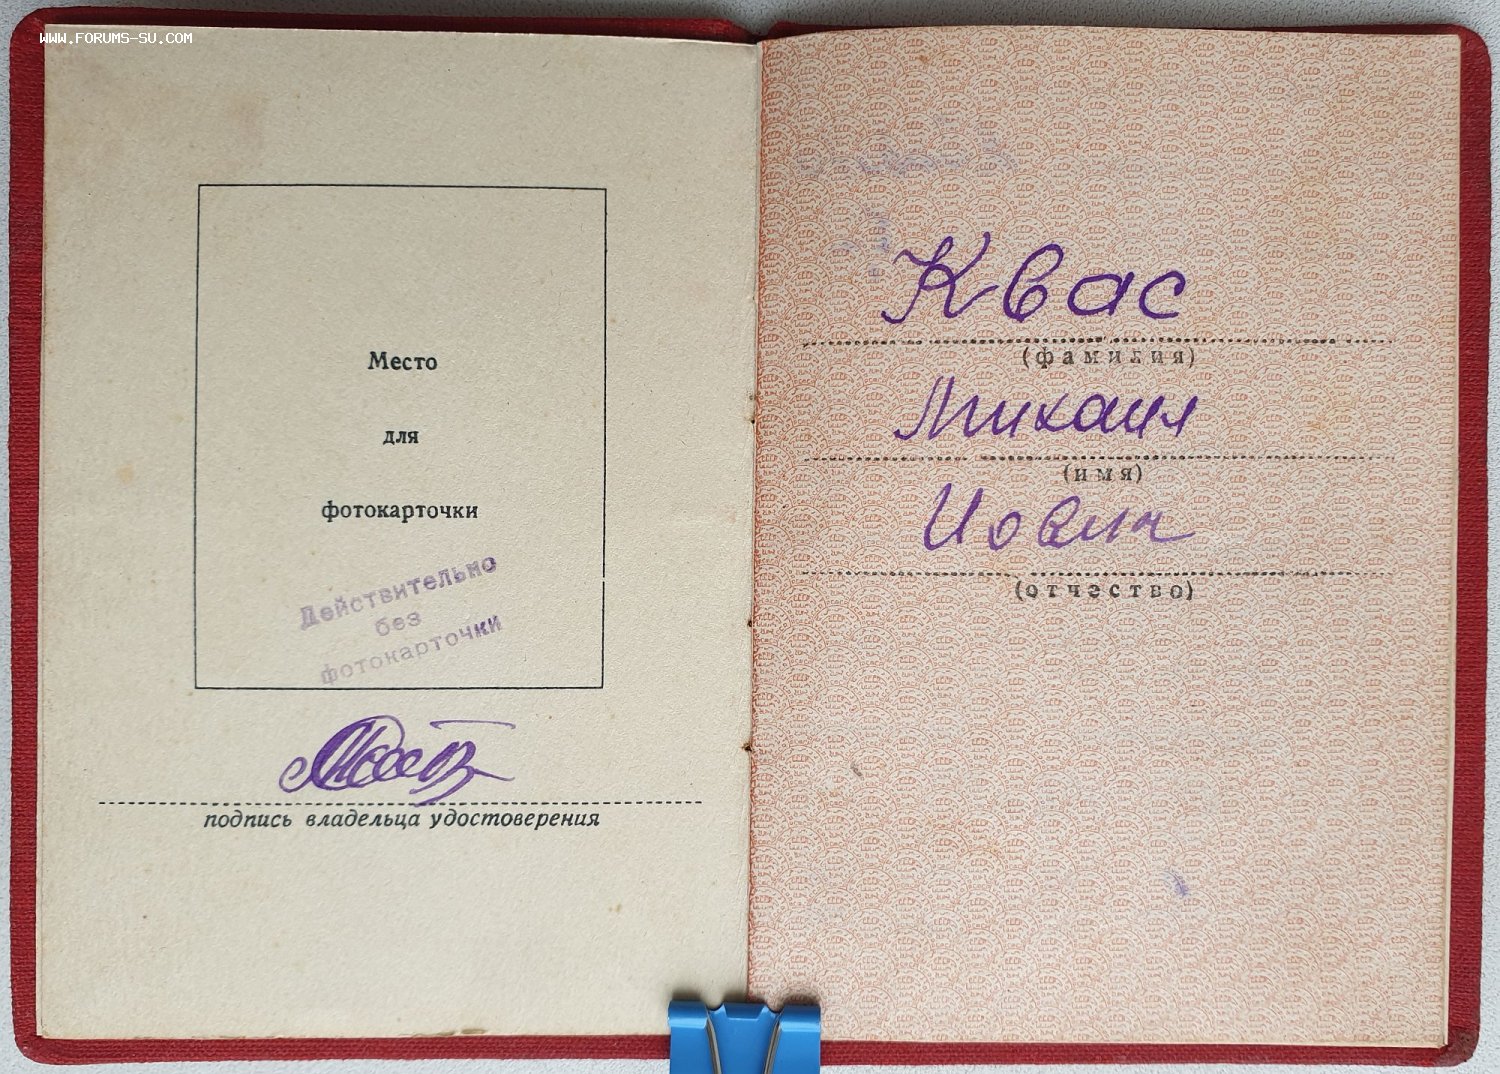 WWW.FORUMS-SU.COM
Место
для
фотокарточки
Действительно
без
фотокарточки
подпись владельца удостоверения
Квас
(фамилия)
Михаил
(имя)
(отчество)